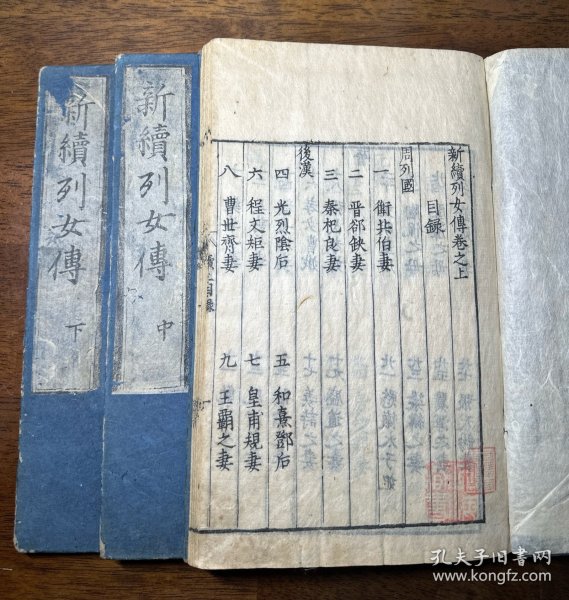 新續列女傳卷之上
目録
周列國
一 衛共伯妻
二 晋郤缺妻
三 秦杞良妻
後漢
四 光烈陰后 五 和熹鄧后
六 程文矩妻 七 皇甫規妻
八 曹世齊妻 九 王霸之妻
新續列女傳 中
新續列女傳 下
孔夫子旧书网
www.kongfz.com